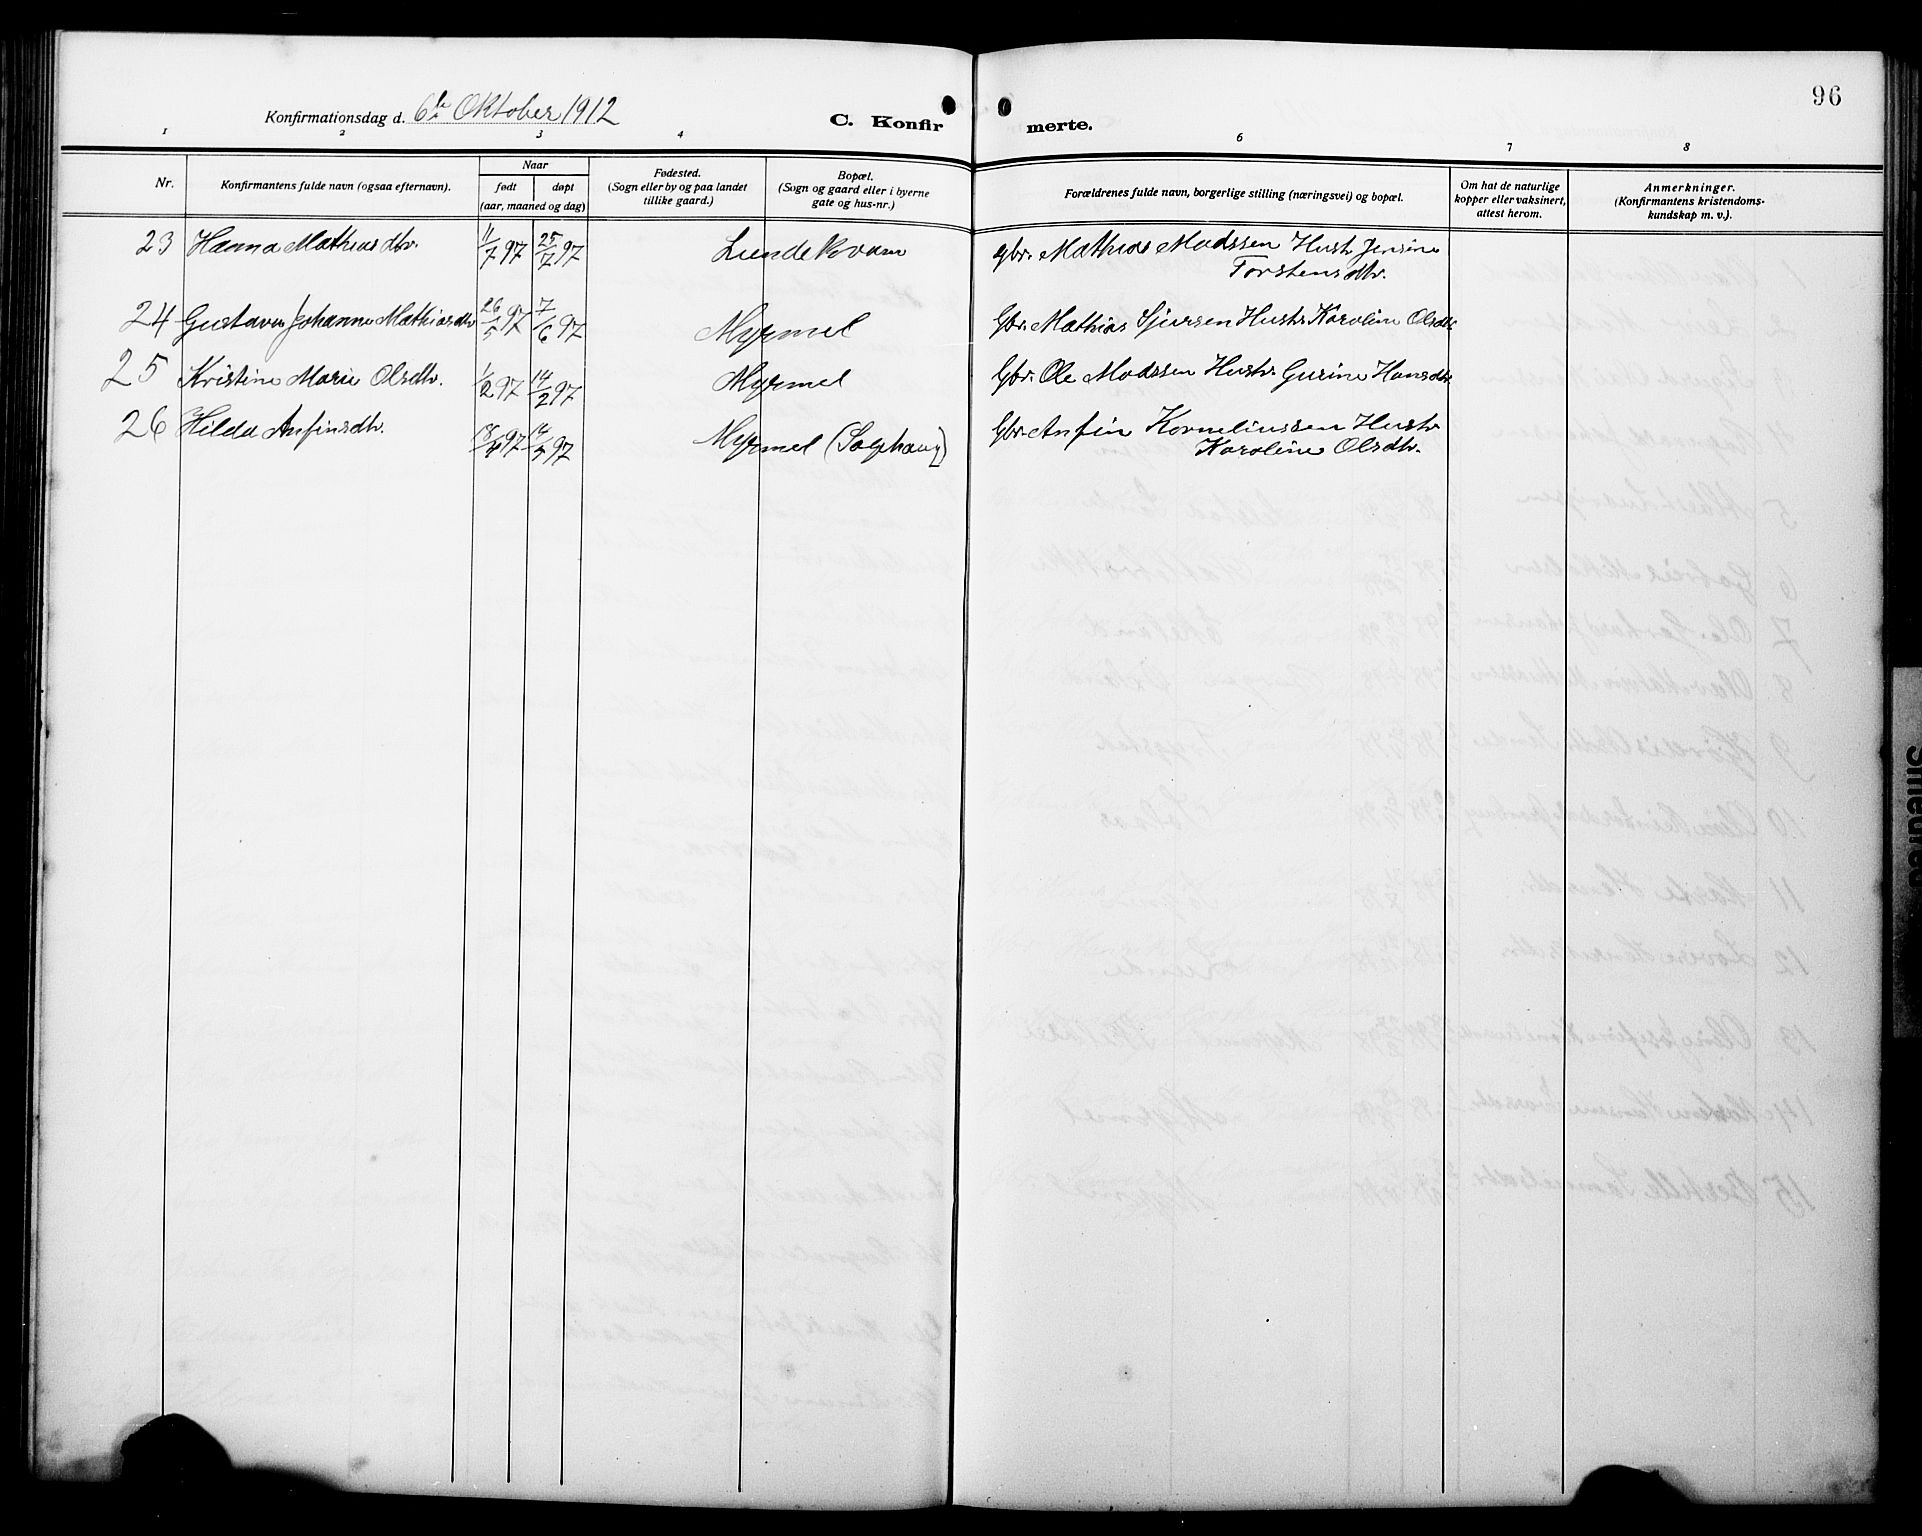 96
Konfirmationsdag d. 6te Oktober 1912
C. Konfir merte.
1 2 3 4 6 7 8
Nr. Konfirmantens fulde navn (ogsaa efternavn). Naar født døpt (aar, maaned og dag) Fødested. (Sogn eller by og paa landet tillike gaard.) Bopæl. (Sogn og gaard eller i byerne gate og hus-nr.) Forældrenes fulde navn, borgerlige stilling (næringsvei) og bopæl. Om hat de naturlige kopper eller vaksinert, attest herom. Anmerkninger. (Konfirmantens kristendoms-kundskap m. v.).
23 Hanna Mathiasdtr. 11/7 97 25/7 97 Lunde Kvam Gbr. Mathias Madssen Hustr. Jensine
Torstensdtr.
24 Gustava Johanne Mathiasdtr 26/5 97 7/6 97 Myrmel Gbr. Mathias Sjursen Hustr. Karoline Olsdtr
25 Kristine Marie Olsdtr. 1/2 97 14/2 97 Myrmel Gbr. Ole Madssen Hustr. Gurine Hansdtr.
26 Hilda Anfinsdtr. 97 97 Myrmel (Solhaug) Gbr. Anfin Korneliussen Hustr
Karoline Olsdtr.